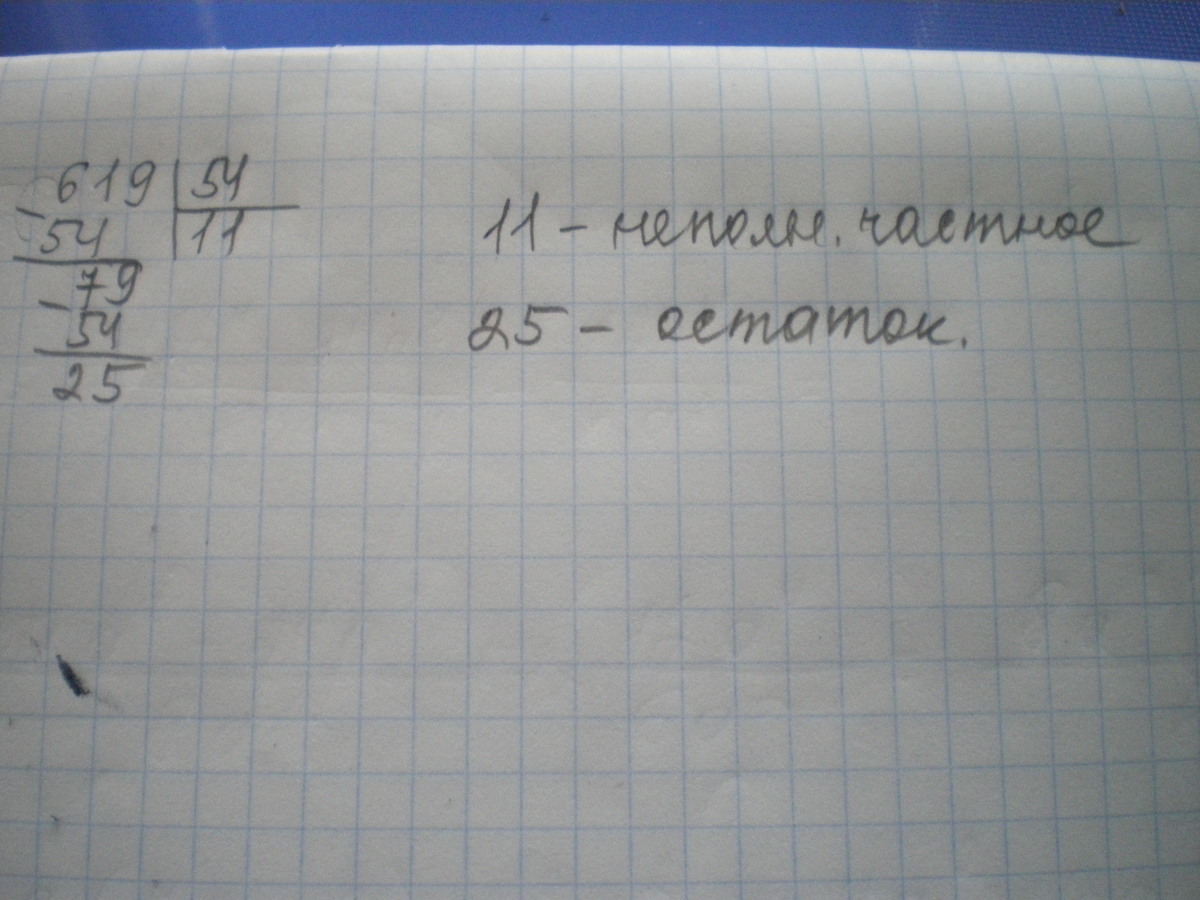 619 | 54
- 54 | 11
- 79
54
25
11 - неполн. частное
25 - остаток.